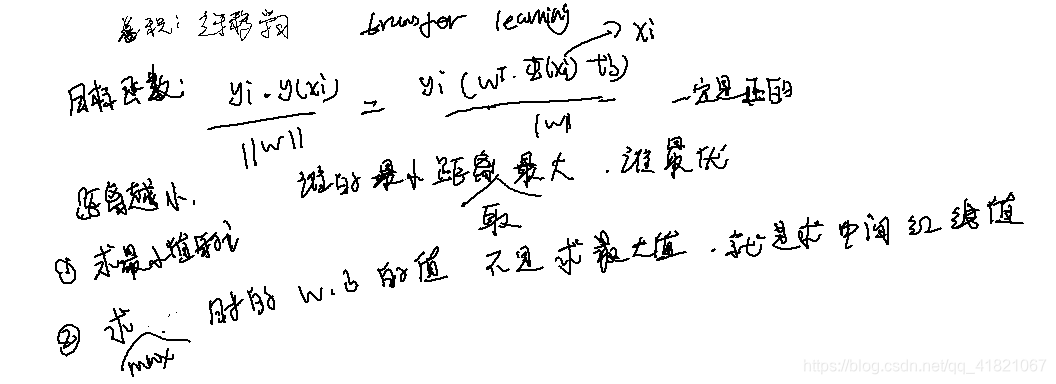 迁移学习 transfer learning
目标函数: yi·y(xi) / ||w|| = yi(wT·Φ(xi)+b) / |w| → xi 一定是正的
距离越小. 谁的最小距离最大.谁最优
取
① 求最小值的i
② 求.. 时的 w.b的值 不是求最大值.就是求中间红线值
max
https://blog.csdn.net/qq_41821067